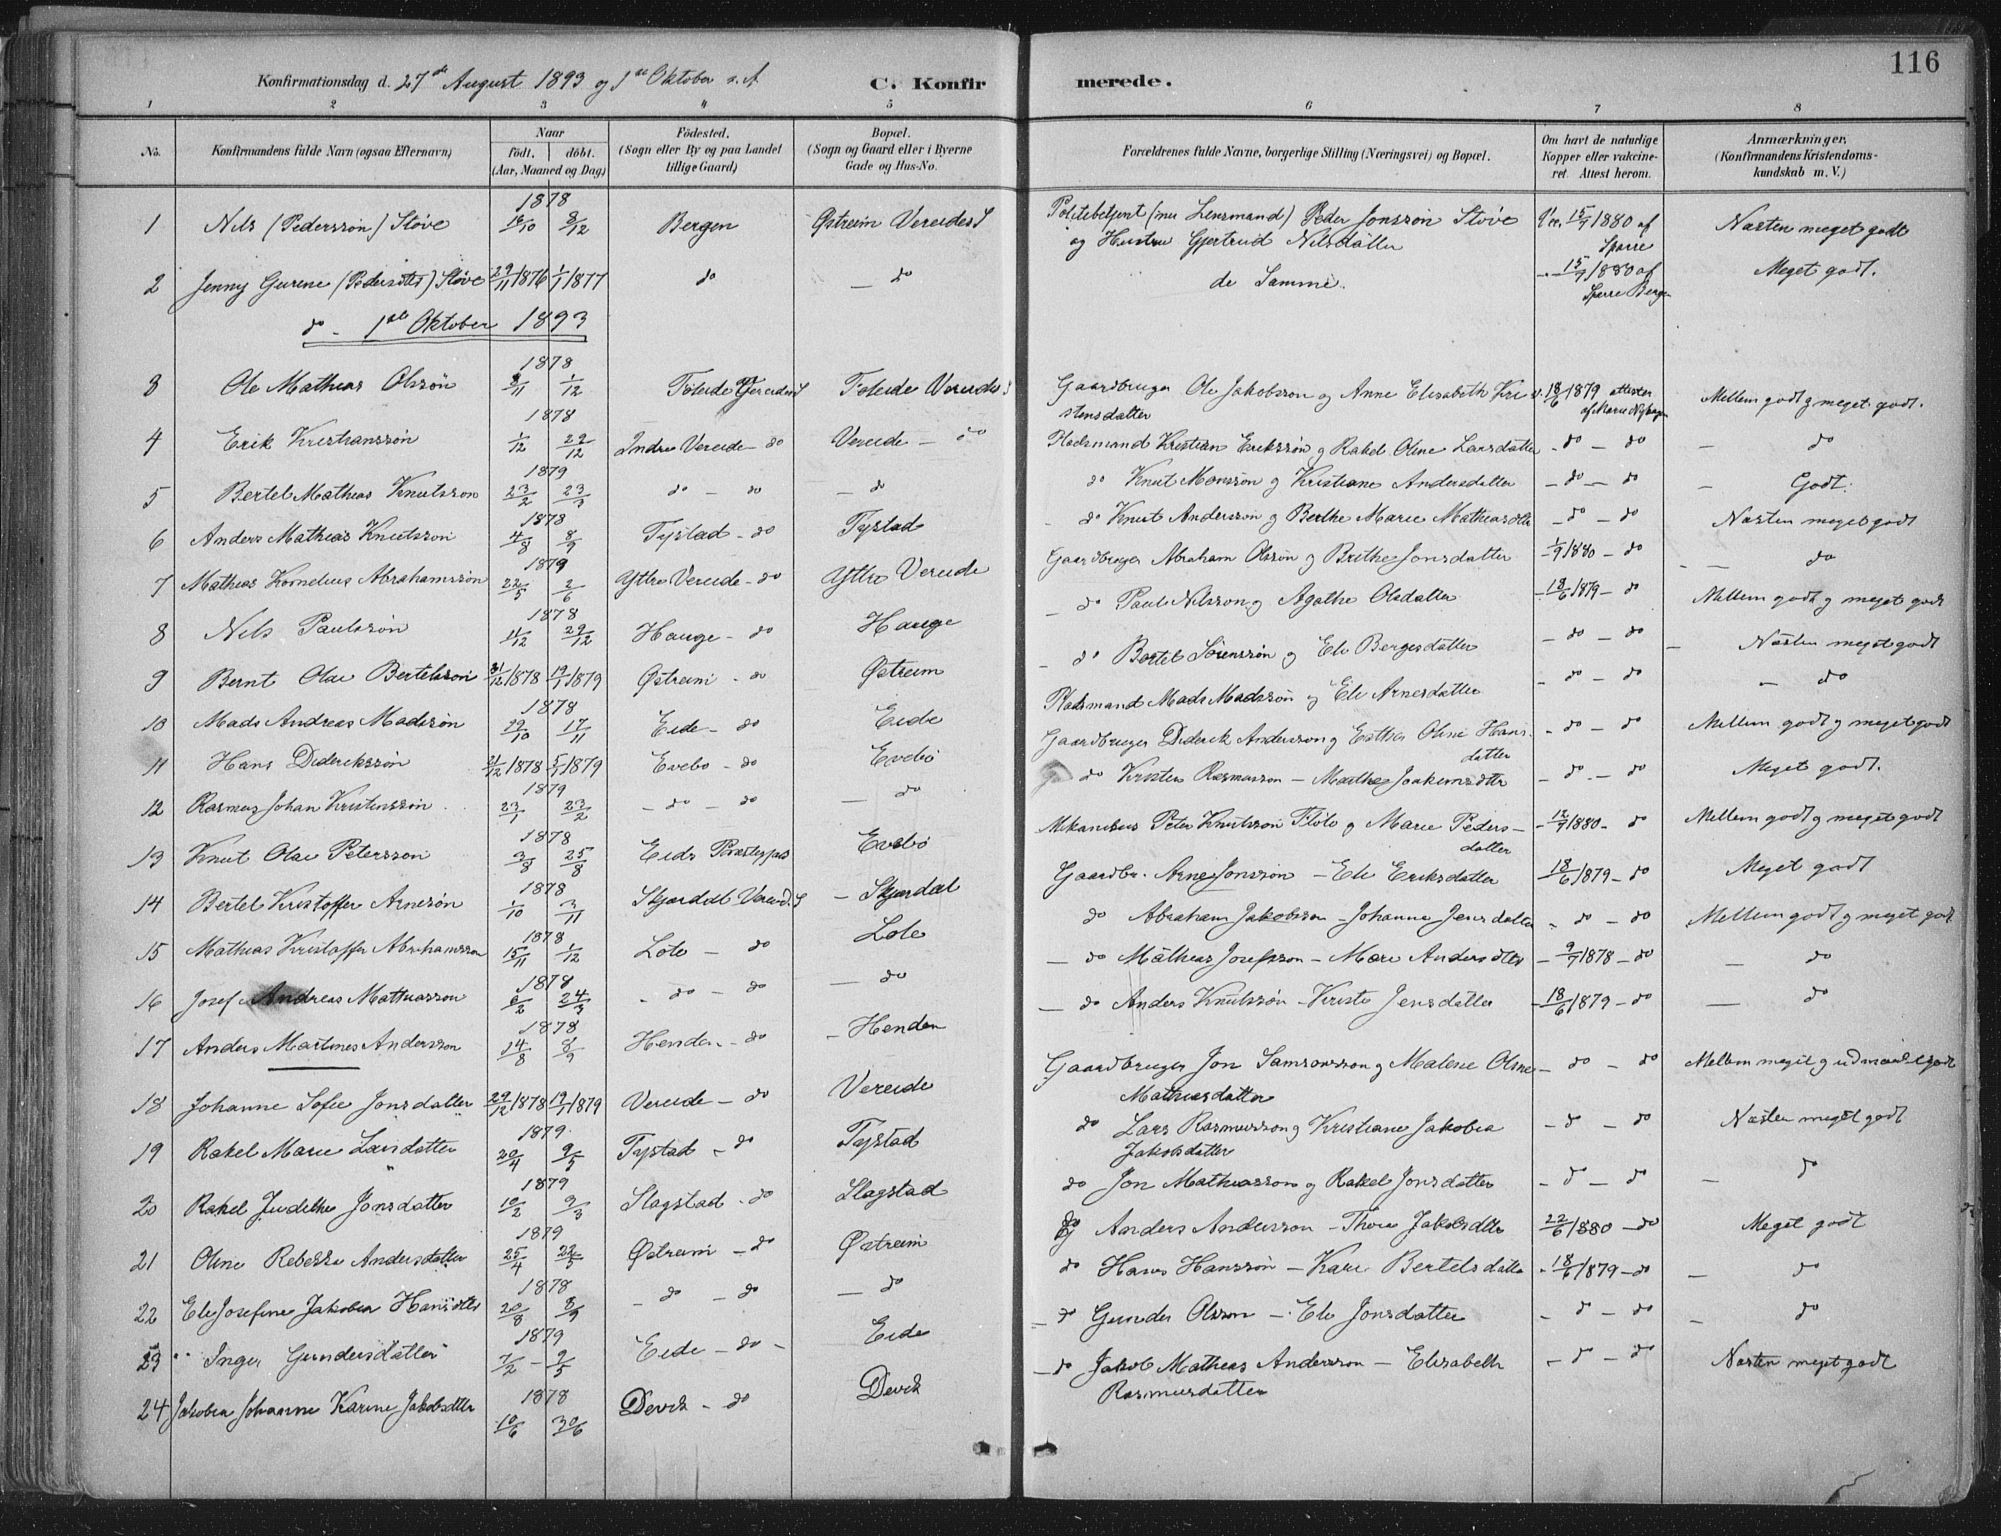 116
Konfirmationsdag d. 27de August 1893 og 1ste Oktober s. A.
C. Konfirmerede.
1 2 3 4 5 6 7 8
No. Konfirmandens fulde Navn (ogsaa Efternavn) Naar født. døbt. (Aar, Maaned og Dag) Fødested. (Sogn eller By og paa Landet tillige Gaard) Bopæl. (Sogn og Gaard eller i Byerne Gade og Hus-No. Forældrenes fulde Navne, borgerlige Stilling (Næringsvei) og Bopæl. Om havt de naturlige Kopper eller vakcineret. Attest herom. Anmærkninger. (Konfirmandens Kristendomskundskab m. V.)
1878
1 Nils (Pederssøn) Støve 16/10 8/12 Bergen Østreim Vereides S Politibetjent (nu Lensmand) Peder Jonssøn Støve 15/9 1880 af Sparre Næsten meget godt
og Hustru Gjertrud Nilsdatter
2 Jenny Gurene (Pedersdtr) Støve 29/11 1876 1/1 1877 do — do de Samme. 15/9 1880 af Sparre Bergen Meget godt.
do - 1ste Oktober 1893
1878
3 Ole Mathias Olssøn 3/11 1/12 Toleide Vereides S Toleide Vereides S Gaardbruger Ole Jakobssøn og Anne Elisabeth Kristensdatter 18/6 1879 attester af Marie Nyhagen Mellem godt og meget godt.
1878
4 Erik Kristianssøn 1/12 22/12 Indre Vereide - do Vereide - do Pladsmand Kristian Erikssøn og Rakel Oline Larsdatter - do - do - do
1879
5 Bertel Mathias Knutssøn 23/2 23/3 do - do - do do Knut Monssøn og Kristiane Andersdatter - do - do - Godt.
1878
6 Anders Mathias Knutssøn 4/8 8/9 Tystad - do Tystad - do Knut Anderssøn og Berthe Marie Mathiasdtr - do - do Næsten meget godt
1879
7 Mathias Kornelius Abrahamssøn 22/5 2/6 Yttre Vereide - do Yttre Vereide Gaardbruger Abraham Olssøn og Brithe Jonsdatter 1/9 1880 - do - do
1878
8 Nils Paulssøn 4/12 29/12 Hauge - do Hauge - do Paul Nilssøn og Agathe Olsdatter 18/6 1879 - do Mellem godt og meget godt
9 Bernt Olai Bertelssøn 31/12 1878 19/1 1879 Østreim - do Østreim - do Bertel Sørenssøn og Eli Bergesdatter - do - do - Næsten meget godt
1878
10 Mads Andreas Madssøn 19/10 17/11 Eide - do Eide Pladsmand Mads Madssøn og Eli Arnesdatter - do - do - do
11 Hans Dideriksson 2/12 1878 5/1 1879 Evebø - do Evebø Gaardbruger Diderik Anderssøn og Esther Oline Hansdatter - do - do Mellem godt og meget godt
1879
12 Rasmus Johan Kristenssøn 23/1 23/2 - do - do - do do Kristen Rasmussøn - Marthe Joakimsdtr - do - do Meget godt.
1878
13 Knut Olai Peterssøn 3/8 25/8 Eids Præstegjeld Evebø Mekanikus Peter Knutssøn Fløtø og Marie Pedersdatter 12/9 1880 - do Mellem godt og meget godt
1878
14 Bertel Kristoffer Arnesøn 1/10 3/11 Skjerdal Vereid. S - Skjerdal Gaardbr. Arne Jonssøn - Eli Eriksdatter 18/6 1879 - do Meget godt
1878
15 Mathias Kristoffer Abrahamssøn 15/11 1/12 Lote - do Lote do Abraham Jakobssøn - Johanne Jensdatter - do - do Mellem godt og meget godt
1878
16 Josef Andreas Mathiassøn 6/2 24/3 - do - do - do - do Mathias Josefssøn - Mari Andersdtr - 9/9 1878 - do - do
1878
17 Anders Martines Anderssøn 14/8 8/9 Henden - do - Henden - do Anders Knutssøn - Kristi Jensdatter - 18/6 1879 - do - do
18 Johanne Sofie Jonsdatter 29/12 1878 19/1 1879 Vereide - do Vereide Gaardbruger Jon Samsonssøn og Malene Oline Mathiasdatter - do - do Mellem meget og udmærket godt
1879
19 Rakel Marie Larsdatter 20/4 9/5 Tystad - do Tystad do Lars Rasmussøn og Kristiane Jakobia Jakobsdatter - do - do Næsten meget godt
1879
20 Rakel Judithe Jonsdatter 10/2 9/3 Slagstad - do Slagstad do Jon Mathiassøn og Rakel Jonsdatter - do - do - do
1879
21 Oline Rebekka Andersdatter 25/4 22/5 Østreim - do Østreim do Anders Anderssøn - Thora Jakobsdtr 22/6 1880 - do Meget godt
1878
22 Eli Josefine Jakobia Hansdtr 20/8 8/9 - do - do - do do Hans Hanssøn - Kari Bertelsdatter - 18/6 1879 - do - do
1879
23 Inger Gundersdatter 7/2 - 9/5 Eide - do - Eide - do Gunder Olssøn - Eli Jonsdatter - do - do do
1878
24 Jakobia Johanne Karine Jakobsdtr 10/6 30/6 Devik - do Devik - do Jakob Mathias Anderssøn - Elisabeth Rasmusdatter - do - do Næsten meget godt